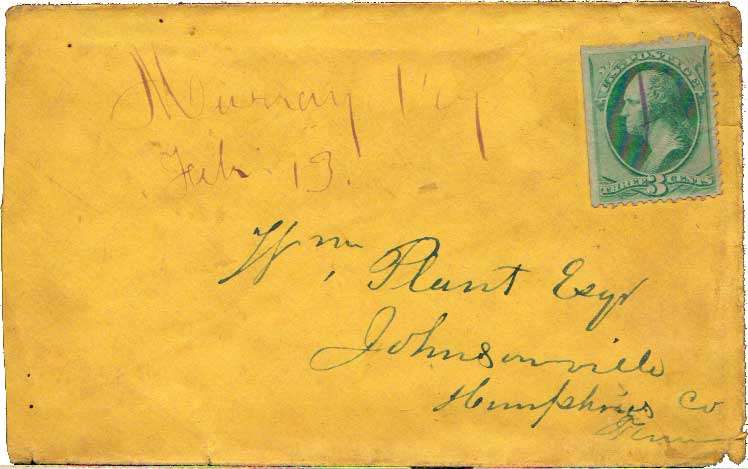 Murray Ky
Feb. 13.
U.S. POSTAGE
THREE 3 CENTS
Wm. Plant Esqr
Johnsonville
Humphries Co
Tenn